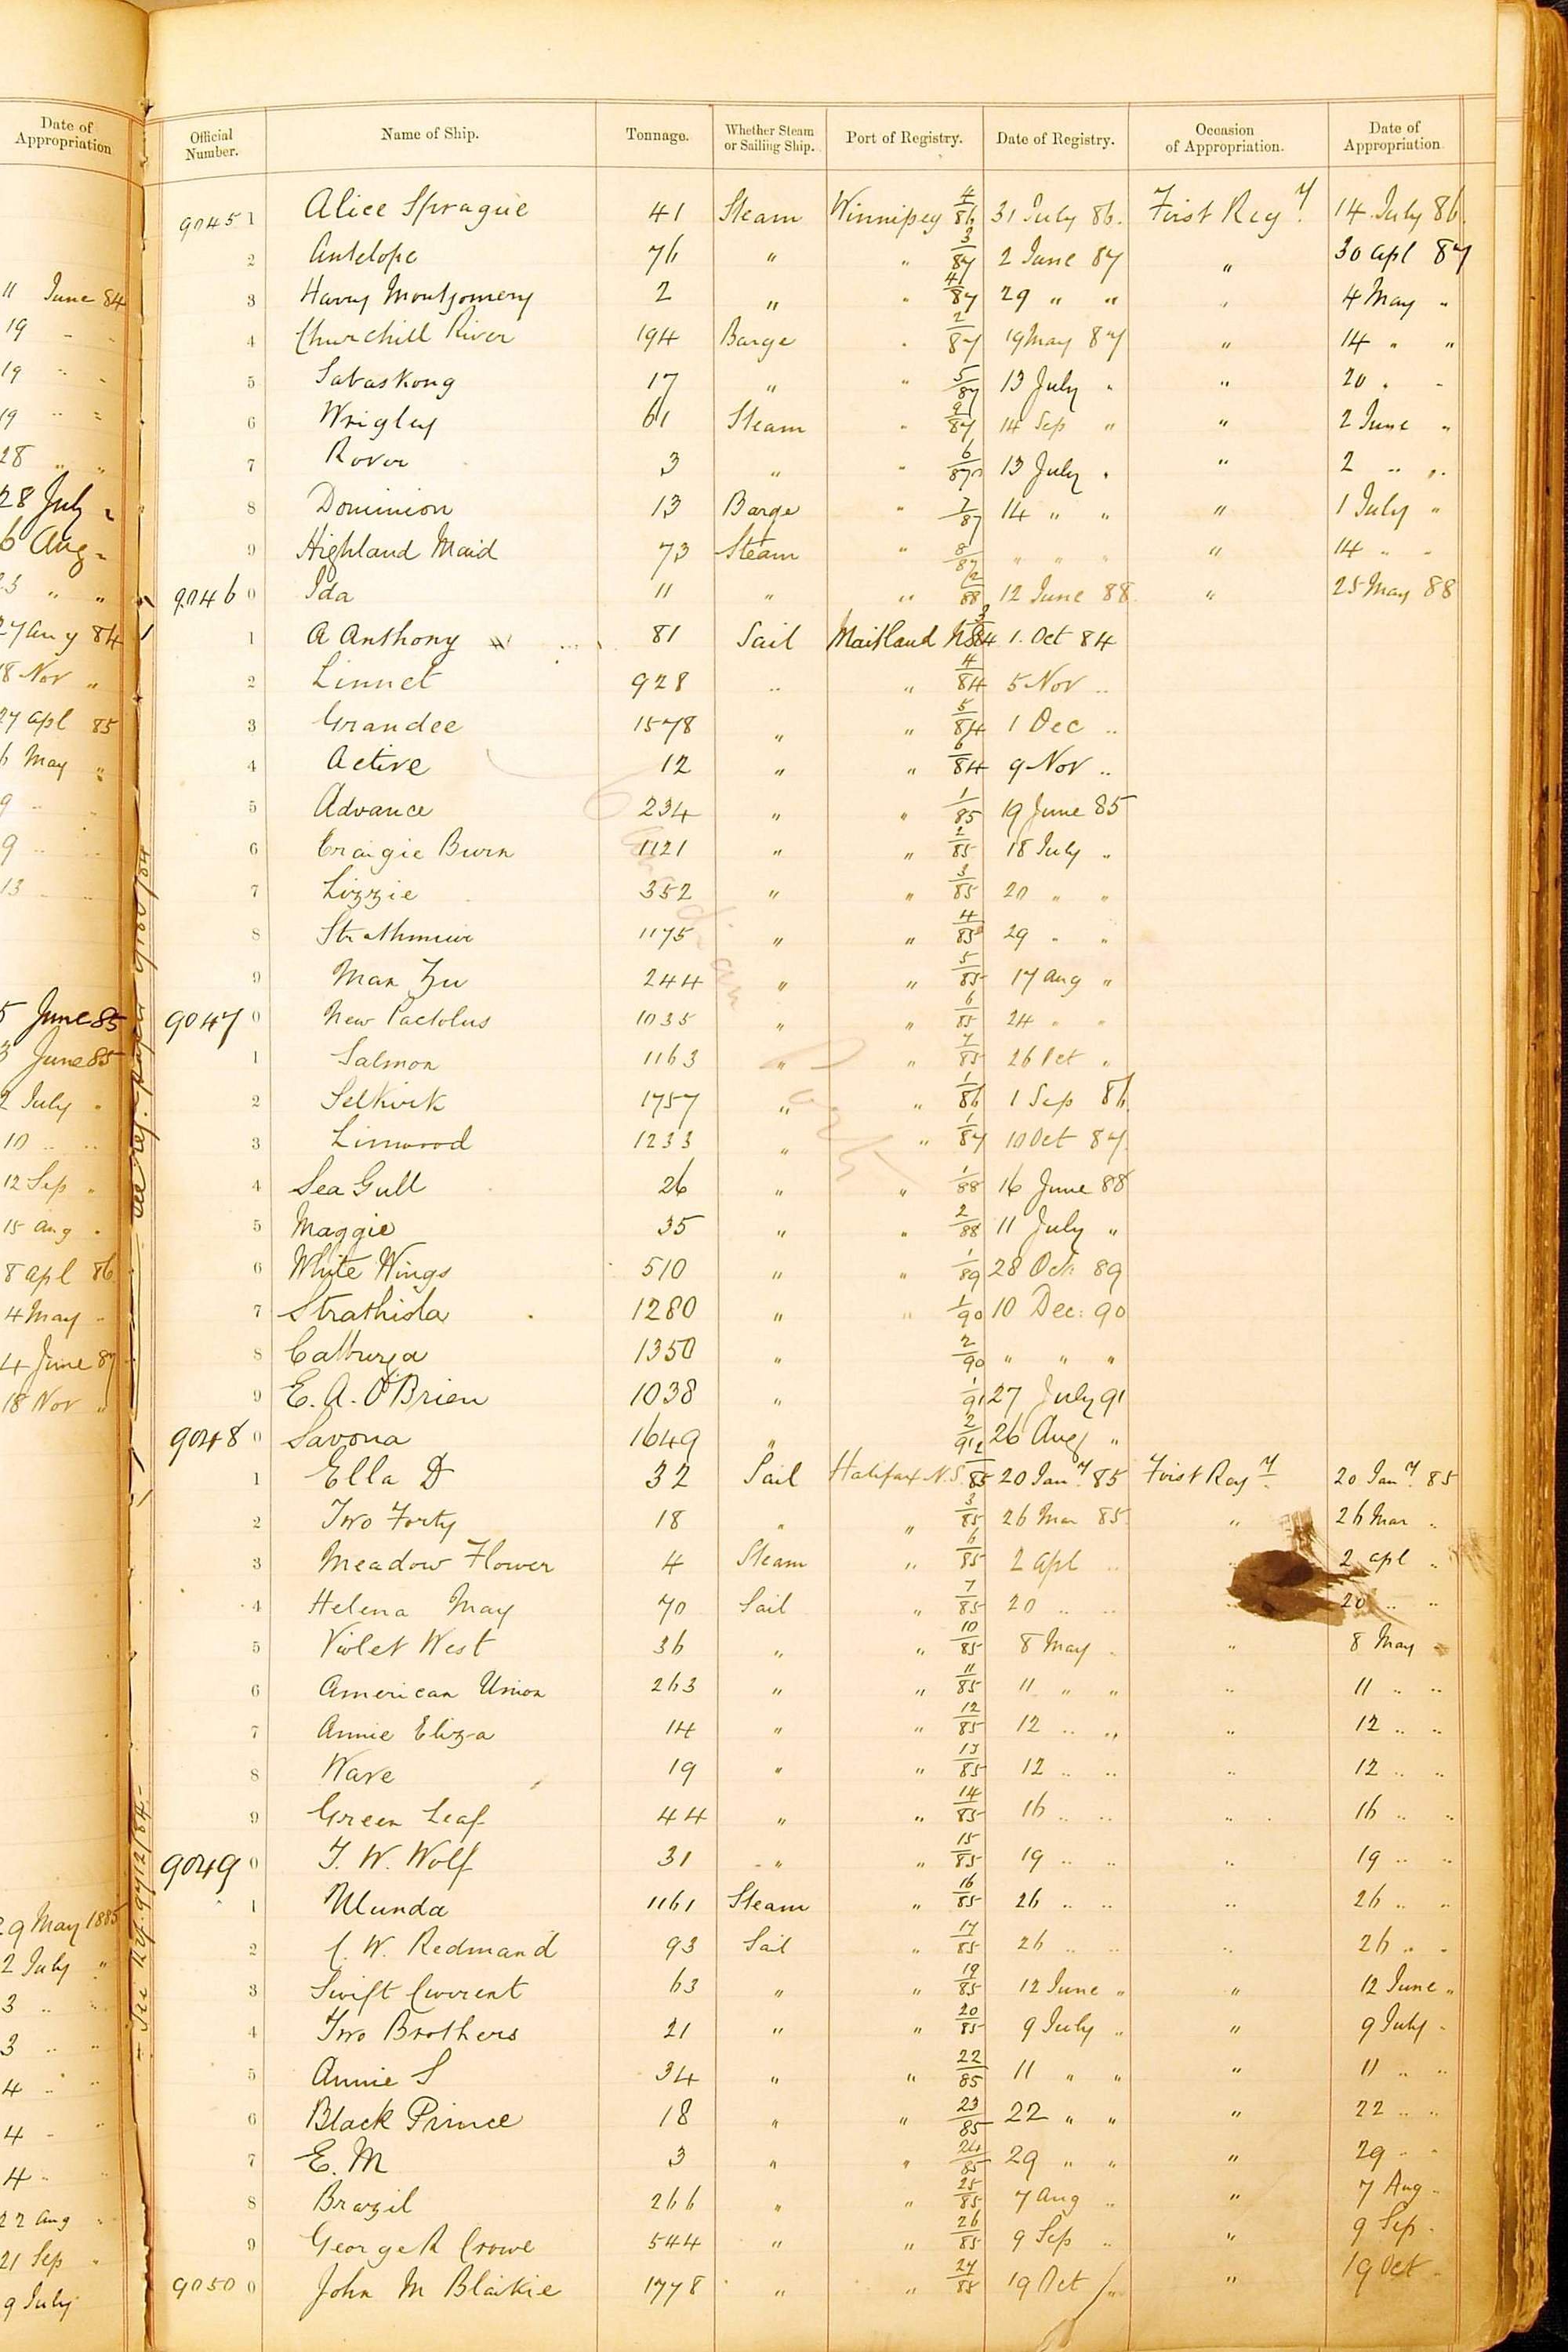 Date of Appropriation
11 June 84
19 " "
19 " "
19 " "
28 " "
28 July "
6 Aug "
" "
27 Aug 84
18 Nov "
27 Apl 85
6 May "
9 "
9 "
13
5 June 85
3 June 85
2 July "
10 " "
12 Sep "
15 Aug "
8 Apl 86
4 May "
4 June 87
18 Nov "
29 May 1885
2 July "
3 " "
3 " "
4 " "
4 "
4 "
22 Aug "
21 Sep "
9 July
Official Number. Name of Ship. Tonnage. Whether Steam or Sailing Ship. Port of Registry. Date of Registry. Occasion of Appropriation. Date of Appropriation.
90451 Alice Sprague 41 Steam Winnipeg 4/86 31 July 86. First Regy. 14 July 86.
2 Antelope 76 " " 3/87 2 June 87 " 30 Apl 87
3 Harry Montgomery 2 " " 4/87 29 " " " 4 May "
4 Churchill River 194 Barge " 2/87 19 May 87 " 14 " "
5 Sabaskong 17 " " 5/87 13 July " " 20 " "
6 Wrigley 61 Steam " 9/87 14 Sep " " 2 June "
7 Rover 3 " " 6/87 13 July " " 2 " "
8 Dominion 13 Barge " 7/87 14 " " " 1 July "
9 Highland Maid 73 Steam " 8/87 " " " " 14 " "
90460 Ida 11 " " 2/88 12 June 88 " 25 May 88
1 A Anthony 81 Sail Maitland NS 3/84 1 Oct 84
2 Linnet 928 " " 4/84 5 Nov "
3 Grandee 1578 " " 5/84 1 Dec "
4 Active 12 " " 6/84 9 Nov "
5 Advance 234 " " 1/85 19 June 85
6 Craigie Burn 1121 " " 2/85 18 July "
7 Lizzie 352 " " 3/85 20 " "
8 Strathmuir 1175 " " 4/85 29 " "
9 Man Zu 244 " " 5/85 17 Aug "
90470 New Pactolus 1035 " " 6/85 24 " "
1 Salmon 1163 " " 7/85 26 Oct "
2 Selkirk 1757 " " 1/86 1 Sep 86
3 Linwood 1233 " " 1/87 10 Oct 87.
4 Sea Gull 26 " " 1/88 16 June 88
5 Maggie 35 " " 2/88 11 July "
6 White Wings 510 " " 1/89 28 Oct: 89
7 Strathisla 1280 " " 1/90 10 Dec: 90
8 Calburga 1350 " 2/90 " " "
9 E. A. O'Brien 1038 " 1/91 27 July 91
90480 Savona 1649 " 2/91 26 Aug "
1 Ella D 32 Sail Halifax N.S. 2/85 20 Jany. 85 First Regy. 20 Jany. 85
2 Two Forty 18 " " 3/85 26 Mar 85. " 26 Mar "
3 Meadow Flower 4 Steam " 6/85 2 Apl " " 2 Apl "
4 Helena May 70 Sail " 7/85 20 " " " 20 " "
5 Violet West 36 " " 10/85 8 May " " 8 May "
6 American Union 263 " " 11/85 11 " " " 11 " "
7 Annie Eliza 14 " " 12/85 12 " " " 12 " "
8 Wave 19 " " 13/85 12 " " " 12 " "
9 Green Leaf 44 " " 14/85 16 " " " 16 " "
90490 T. W. Wolf 31 " " 15/85 19 " " " 19 " "
1 Ulunda 1161 Steam " 16/85 26 " " " 26 " "
2 C. W. Redmand 93 Sail " 17/85 26 " " " 26 " "
3 Swift Current 63 " " 19/85 12 June " " 12 June "
4 Two Brothers 21 " " 20/85 9 July " " 9 July "
5 Annie S 34 " " 22/85 11 " " " 11 " "
6 Black Prince 18 " " 23/85 22 " " " 22 " "
7 E. M 3 " " 24/85 29 " " " 29 " "
8 Brazil 266 " " 25/85 7 Aug " " 7 Aug "
9 George R Crowe 544 " " 26/85 9 Sep " " 9 Sep "
90500 John M Blaikie 1778 " " 27/85 19 Oct " " 19 Oct "